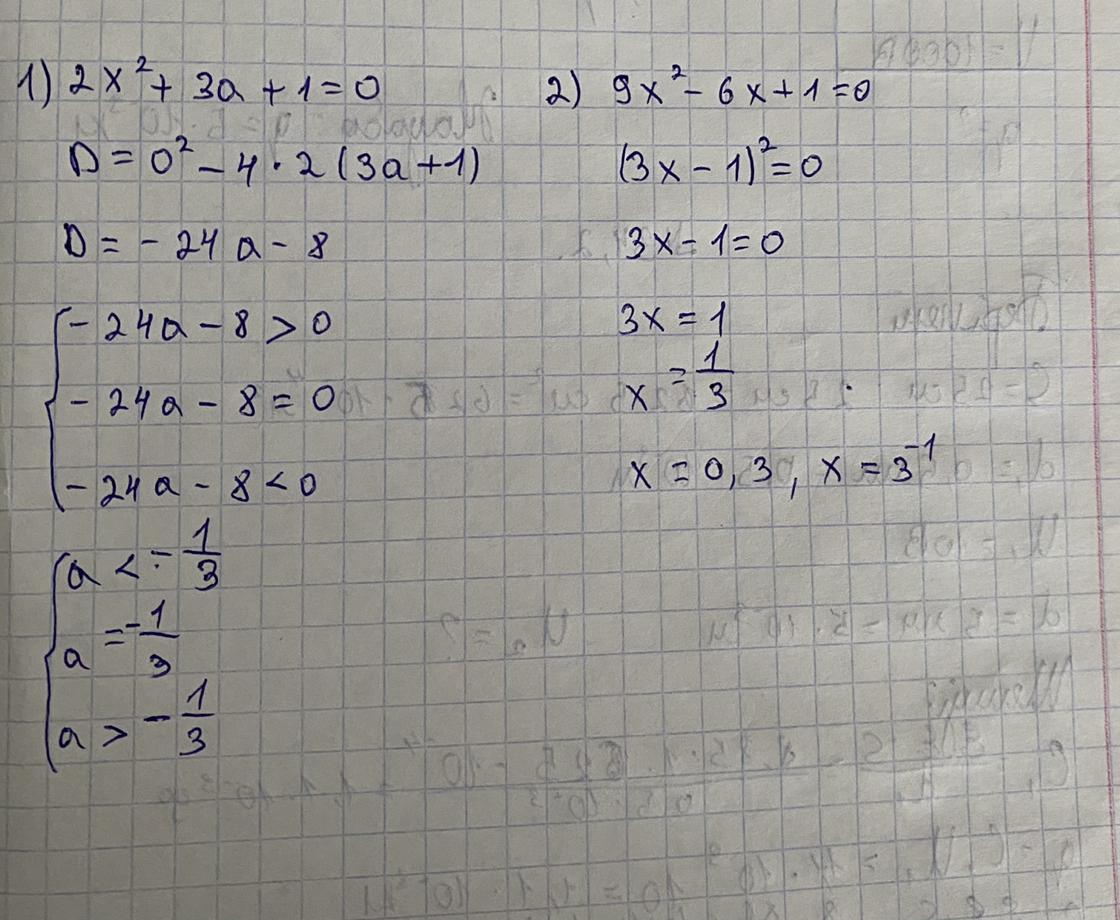 1) 2x² + 3a + 1 = 0
D = 0² - 4 · 2 (3a + 1)
D = - 24a - 8
- 24a - 8 > 0
- 24a - 8 = 0
- 24a - 8 < 0
a < - 1/3
a = - 1/3
a > - 1/3
2) 9x² - 6x + 1 = 0
(3x - 1)² = 0
3x - 1 = 0
3x = 1
x = 1/3
x = 0,3, x = 3⁻¹